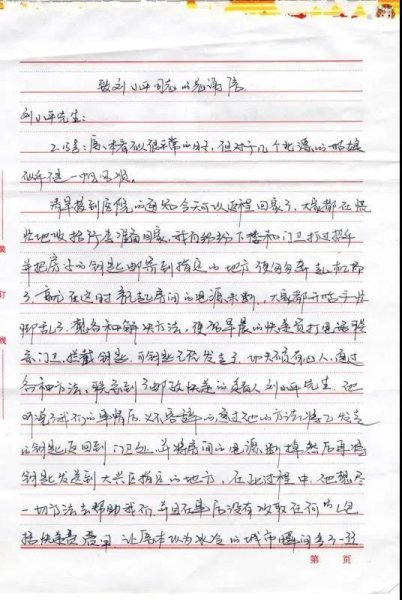 致刘小平同志的感谢信
刘小平先生：
2.15号：原本看似很平常的日子，但对于几个北漂的姑娘
似乎不是一帆风顺。
清早接到医院的通知今天可以返程回家了，大家都在慌
忙地收拾行李准备回家，我们纷纷下楼和门卫打过招呼
并把房子的钥匙邮寄到指定的地方便匆匆奔
了，就在这时想起房间的电源未断，大家都开始手忙
脚乱了，想各种解决方法，便给早晨的快递员打电话联
系门卫，拦截钥匙，可钥匙已经发走了，功夫不负有心人，通过
各种方法，联系到了邮政快递的负责人刘小平先生，他
听说了我们的事情后，义不容辞的，通过他的方法，将已发走
的钥匙返回到门卫处，并将房间的电源断掉然后再将
钥匙发送到大兴区指定的地方，在此过程中，他想尽
一切方法去帮助我们，并且在事后没有收取任何的包
括快递费费用，让原本以为冰冷的城市瞬间多了一丝
第 页
装
订
线